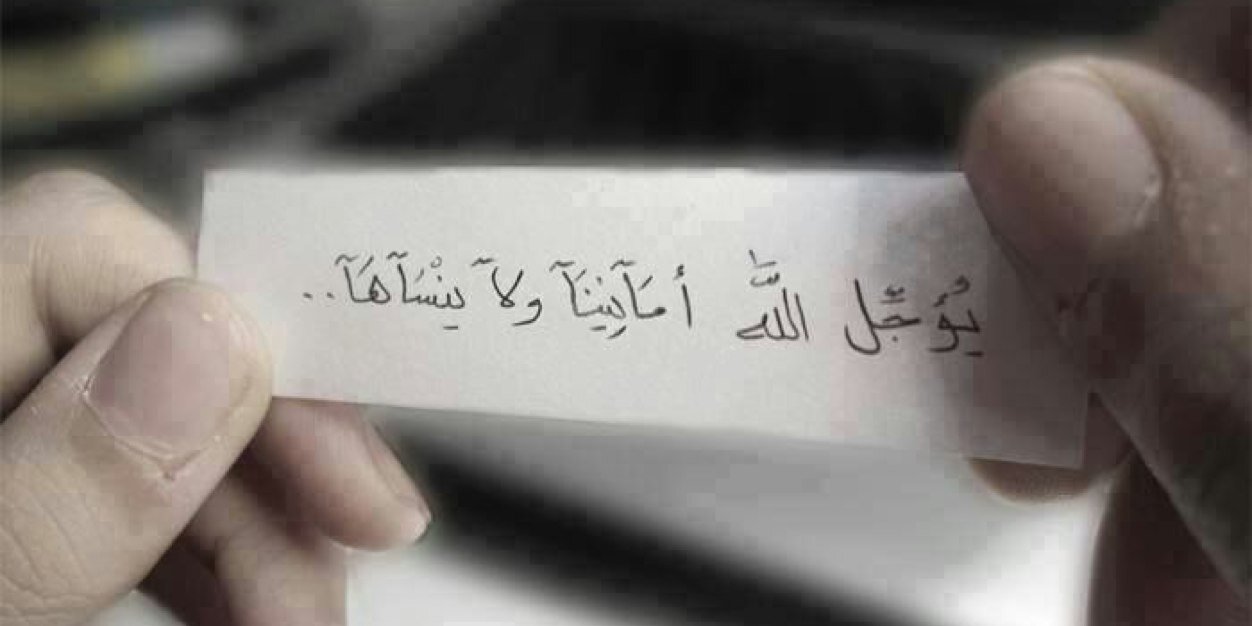 يُؤَجِّل اللَّه أمَآنِينَآ ولآ يَنْسَآهَآ..